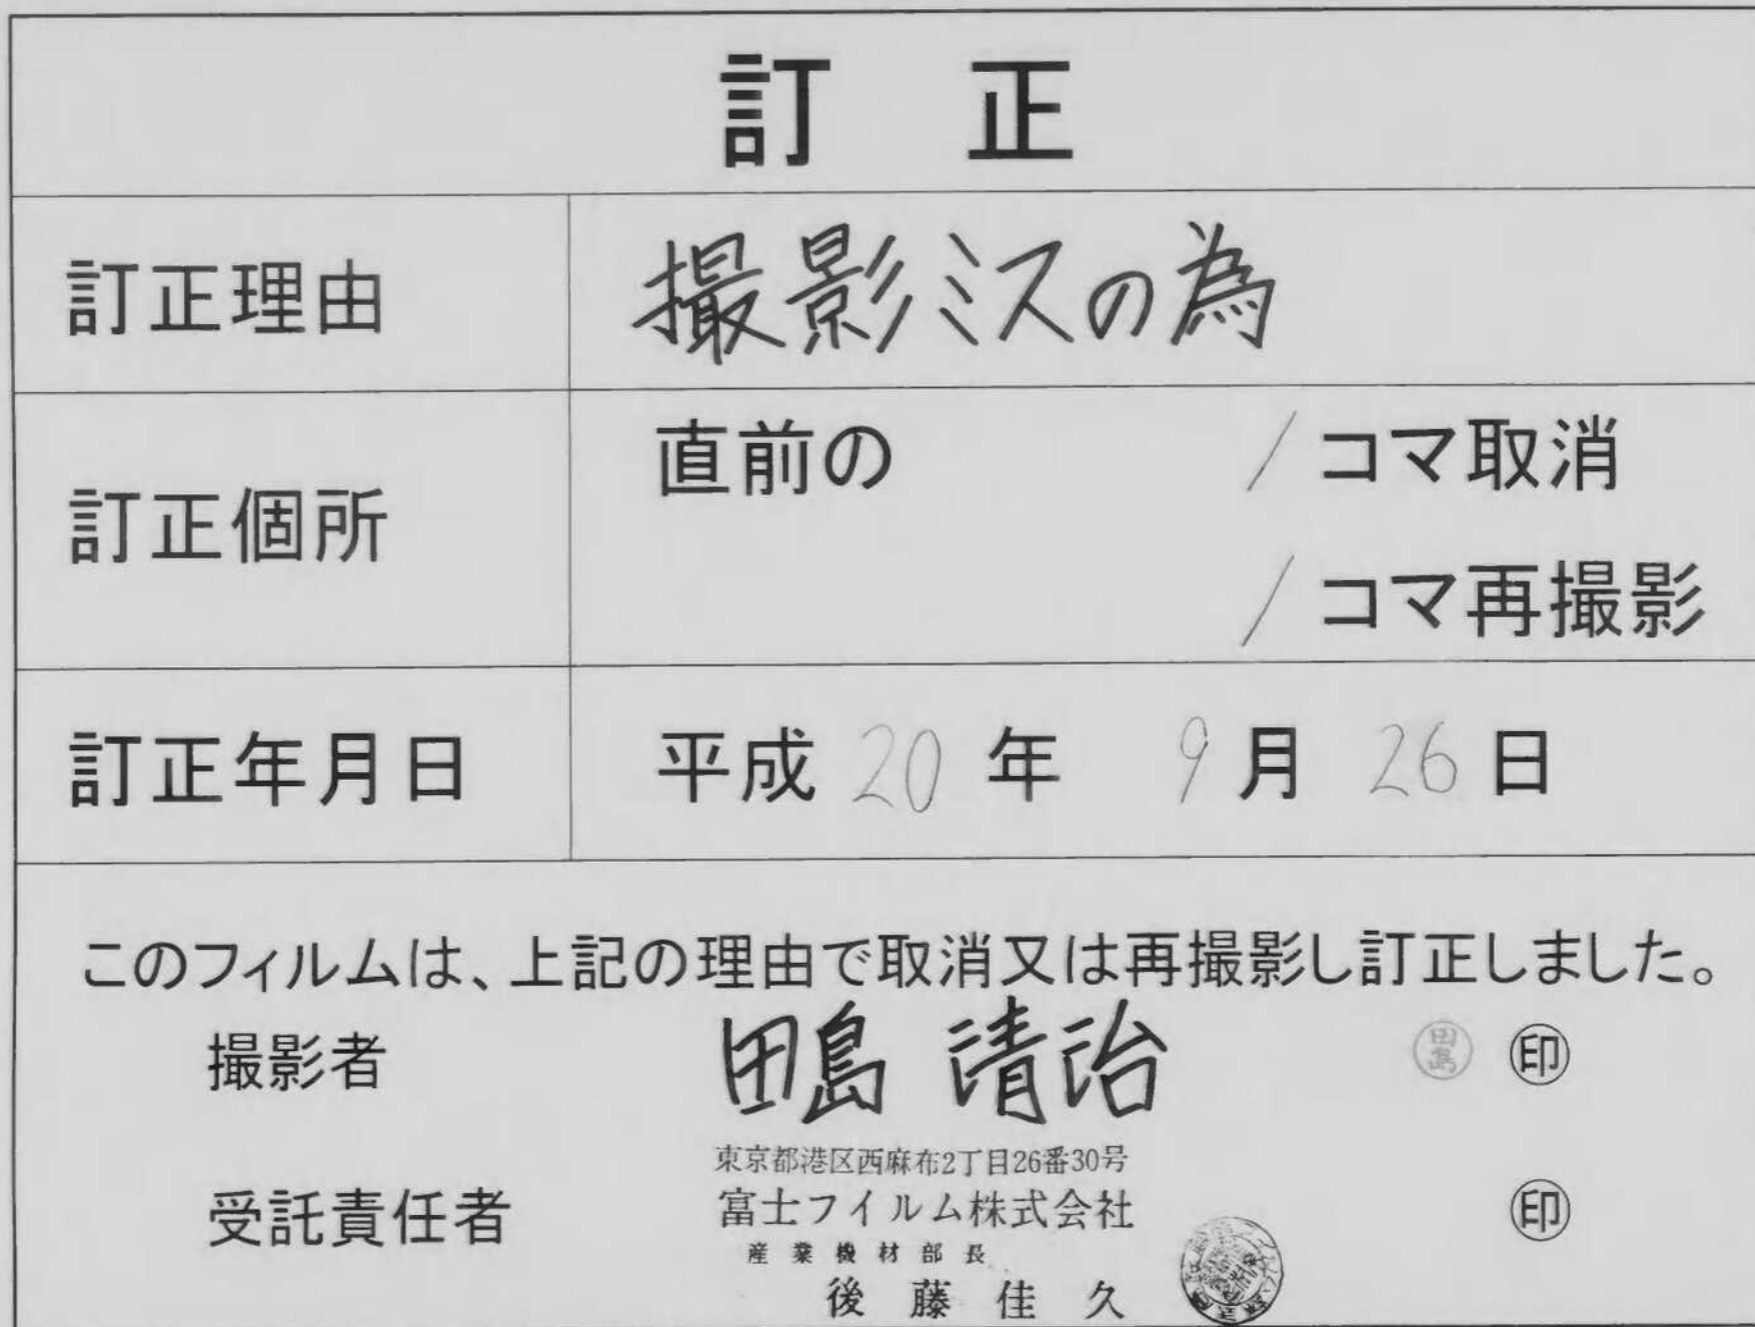 訂正
訂正理由 撮影ミスの為
訂正個所 直前の 1コマ取消
1コマ再撮影
訂正年月日 平成20年 9月26日
このフィルムは、上記の理由で取消又は再撮影し訂正しました。
撮影者 田島 清治 田島 ㊞
東京都港区西麻布2丁目26番30号
受託責任者 富士フイルム株式会社 ㊞
産業機材部長
後藤佳久